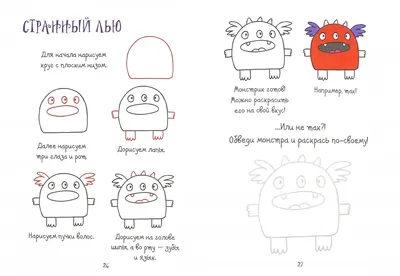 СТРАННЫЙ ЛЬЮ
Для начала нарисуем
круг с плоским низом.
Далее нарисуем
три глаза и рот.
Дорисуем лапы.
Нарисуем пучки волос.
Дорисуем на голове
шипы, а во рту – зубы
и язык.
26
Монстрик готов!
Можно раскрасить
его на свой вкус!
Например, так!
...Или не так?!
Обведи монстра и раскрась по-своему!
27